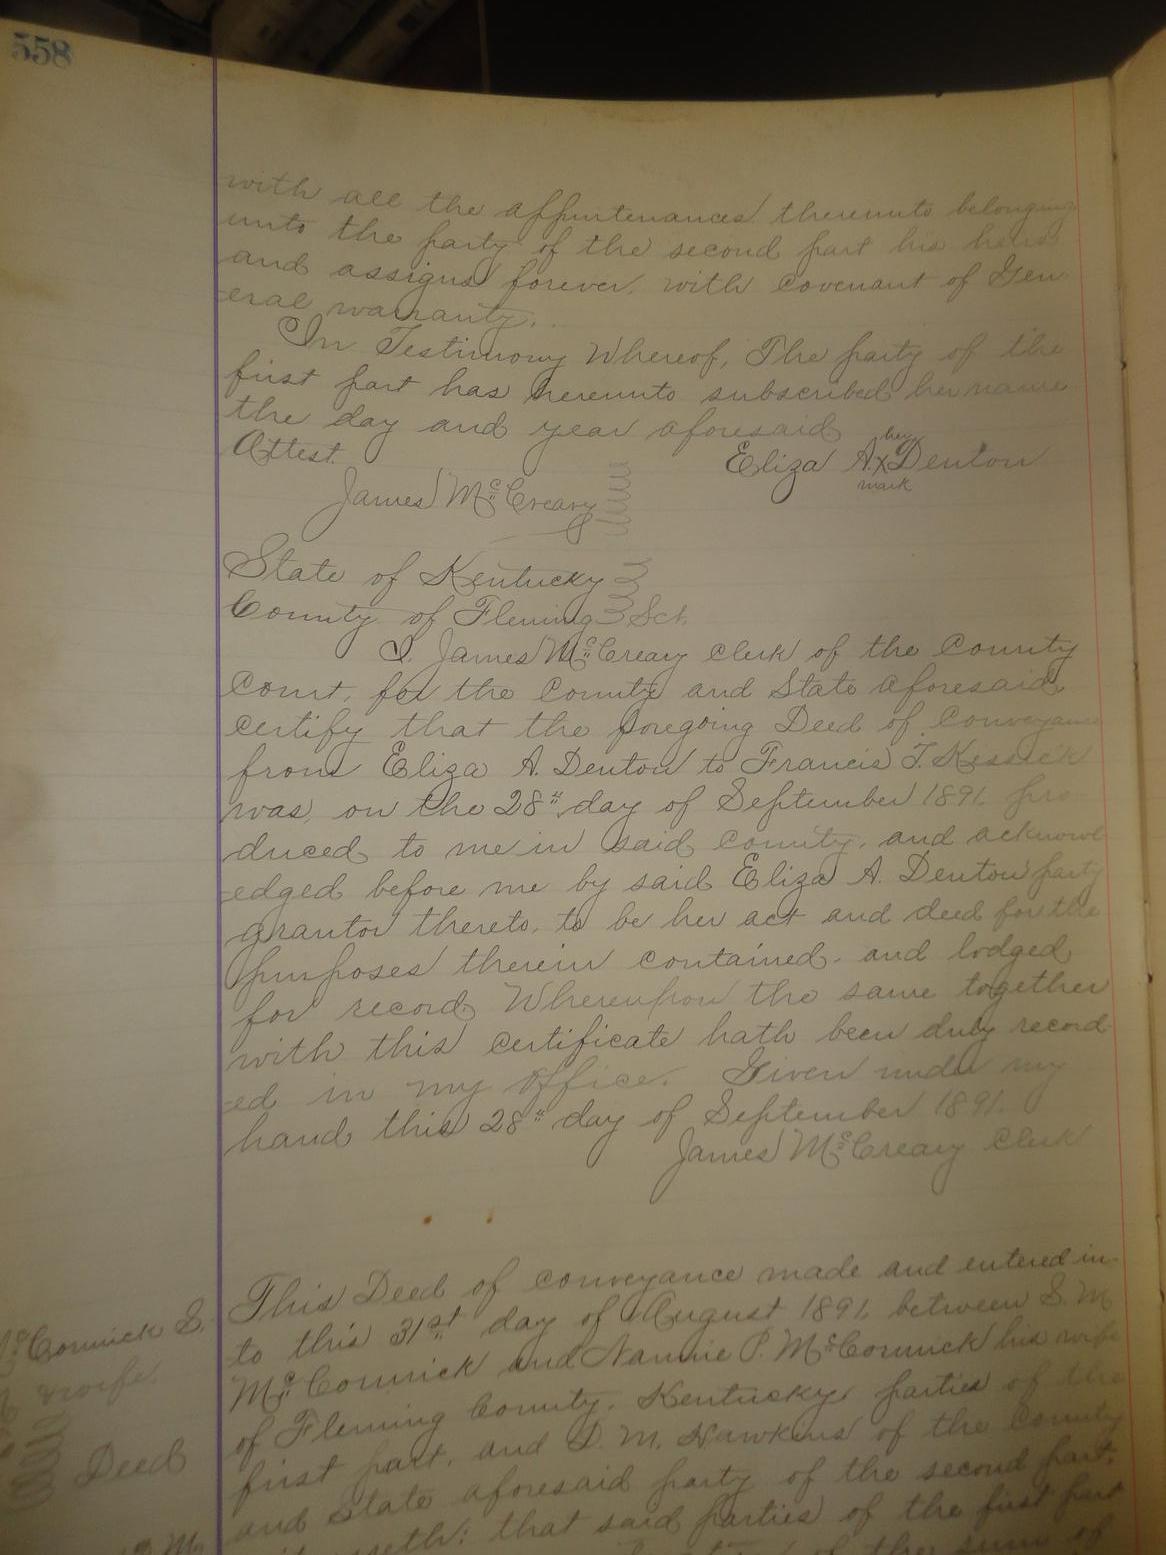 558
with all the appurtenances thereunto belonging
unto the party of the second part his heirs
and assigns forever. with Covenant of Gen
eral warranty.
In Testimony Whereof, The party of the
first part has hereunto subscribed her name
the day and year aforesaid
her
Attest. Eliza A. X Denton
mark
James McCreary
State of Kentucky
County of Fleming Sct.
I. James McCreary Clerk of the County
Court, for the County and State aforesaid,
certify that the foregoing Deed of Conveyance
from Eliza A. Denton to Francis T. Kissick
was, on the 28" day of September 1891. pro
duced to me in said County, and acknowl
edged before me by said Eliza A. Denton party
grantor thereto, to be her act and deed for the
purposes therein contained. and lodged
for record, Whereupon the same together
with this certificate hath been duly record
ed in my office. Given under my
hand this 28" day of September 1891.
James McCreary Clerk
This Deed of conveyance made and entered in
to this 31st day of August 1891, between S. M
McCormick and Nannie P. McCormick his wife
of Fleming County, Kentucky parties of the
first part, and D. M. Hawkins of the County
and State aforesaid party of the second part,
that said parties of the first part
of the sum of
McCormick S.
wife.
Deed